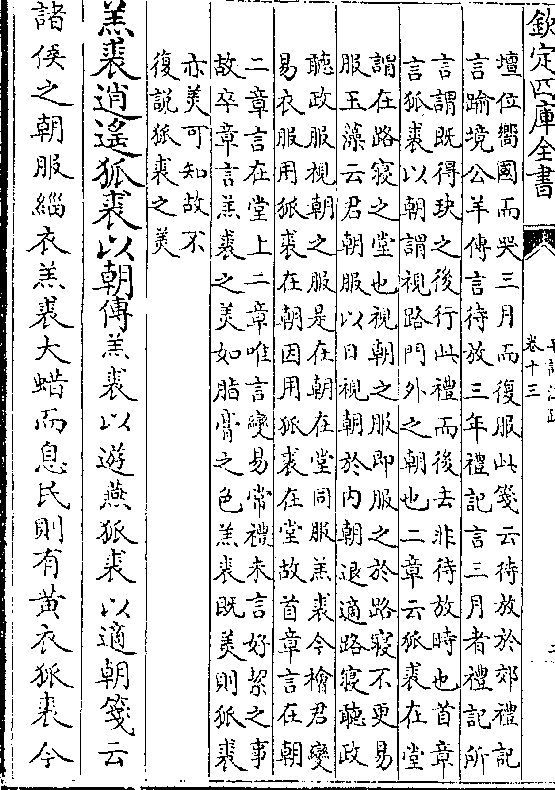 欽定四庫全書
卷十三
壇位嚮國而哭三月而復服此箋云待放於郊禮記
言踰境公羊傳言待放三年禮記言三月者禮記所
言謂既得玦之後行此禮而後去非待放時也首章
言狐裘以朝謂視路門外之朝也二章云狐裘在堂
謂在路寢之堂也視朝之服即服之於路寢不更易
服玉藻云君朝服以日視朝於内朝退適路寢聽政
聽政服視朝之服是在朝在堂同服羔裘今檜君變
易衣服用狐裘在朝因用狐裘在堂故首章言在朝
二章言在堂上二章唯言變易常禮未言好絜之事
故卒章言羔裘之美如脂膏之色羔裘既美則狐裘
亦美可知故不
復說狐裘之美
羔裘逍遙狐裘以朝傳羔裘以遊燕狐裘以適朝箋云
諸侯之朝服緇衣羔裘大蜡而息民則有黄衣狐裘今